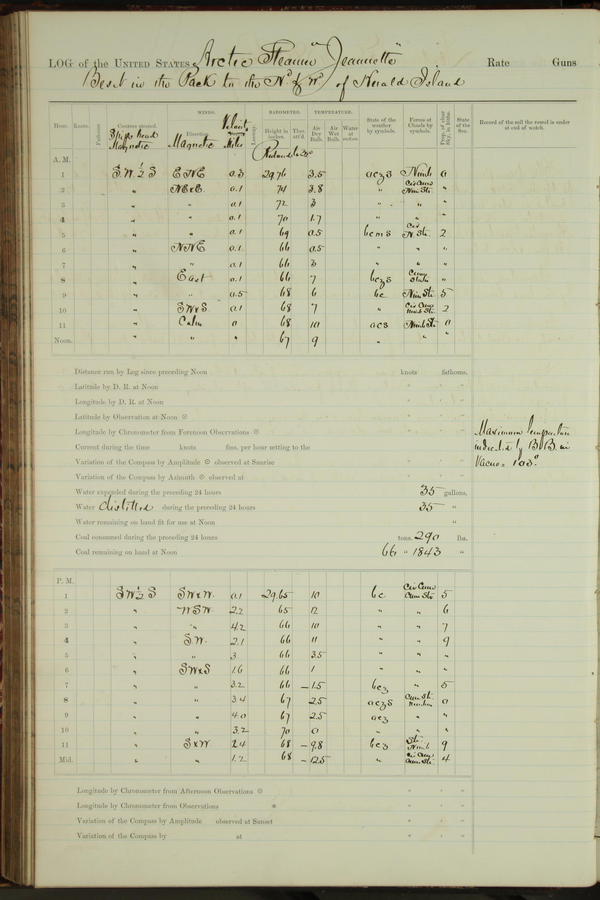 LOG of the UNITED STATES Arctic Steamer "Jeannette" Rate Guns
Beset in the Pack to the Nd & Wd of Herald Island
WINDS. BAROMETER. TEMPERATURE.
Hour. Knots. Fathoms. Courses steered. Direction. Velocity Miles Height in inches. Ther. att'd. Air Dry Bulb. Air Wet Bulb. Water at surface. State of the weather by symbols. Forms of Clouds by symbols. Prop. of clear Sky, in tenths. State of the Sea. Record of the sail the vessel is under at end of watch.
Ship's head Magnetic Magnetic Reduced to 32°
A. M.
1 SW ½ S ENE 0.3 29.76 3.5 oczs Nimb 0
2 " NExE 0.1 74 3.8 " Cir Cum Nim Str "
3 " " 0.1 72 3 " " "
4 " " 0.1 70 1.7 " " "
5 " " 0.1 69 0.5 bcms Cir N. Str. 2
6 " NNE 0.1 66 0.5 " " "
7 " " 0.1 66 3 " " "
8 " East 0.1 66 7 bczs "
9 " " 0.5 68 6 bc Nim Str 5
10 " SWxS 0.1 68 7 " Cir Cum Nimb Str 2
11 " Calm 0 68 10 ocs Nimb Str 0
Noon. " " " 67 9 " " "
Distance run by Log since preceding Noon knots fathoms.
Latitude by D. R. at Noon
Longitude by D. R. at Noon
Latitude by Observation at Noon
Longitude by Chronometer from Forenoon Observations
Current during the time knots fms. per hour setting to the
Variation of the Compass by Amplitude observed at Sunrise
Variation of the Compass by Azimuth observed at
Water expended during the preceding 24 hours 35 gallons.
Water distilled during the preceding 24 hours 35 "
Water remaining on hand fit for use at Noon "
Coal consumed during the preceding 24 hours tons. 290 lbs.
Coal remaining on hand at Noon 66 " 1843 "
Maximum temperature
indicated by B.B. in
Vacuo = 103°
P. M.
1 SW ½ S SWxW. 0.1 29.65 10 bc Cir Cum Cum Str 5
2 " WSW. 2.2 65 12 " " 6
3 " " 4.2 66 10 " " 7
4 " SW. 2.1 66 11 " " 9
5 " " 3 66 3.5 " " "
6 " SWxS 1.6 66 1 " " "
7 " " 3.2 66 -1.5 bcz " 5
8 " " 3.4 67 2.5 oczs Cum Str. 0
9 " " 4.0 67 2.5 ocz " "
10 " " 3.2 70 0 " " "
11 " SxW 2.4 68 -9.8 bcz Str. Nimb 9
Mid. " " 1.2 68 -12.5 " Cir Cum Cum Str. 4
Longitude by Chronometer from Afternoon Observations
Longitude by Chronometer from Observations
Variation of the Compass by Amplitude observed at Sunset
Variation of the Compass by at